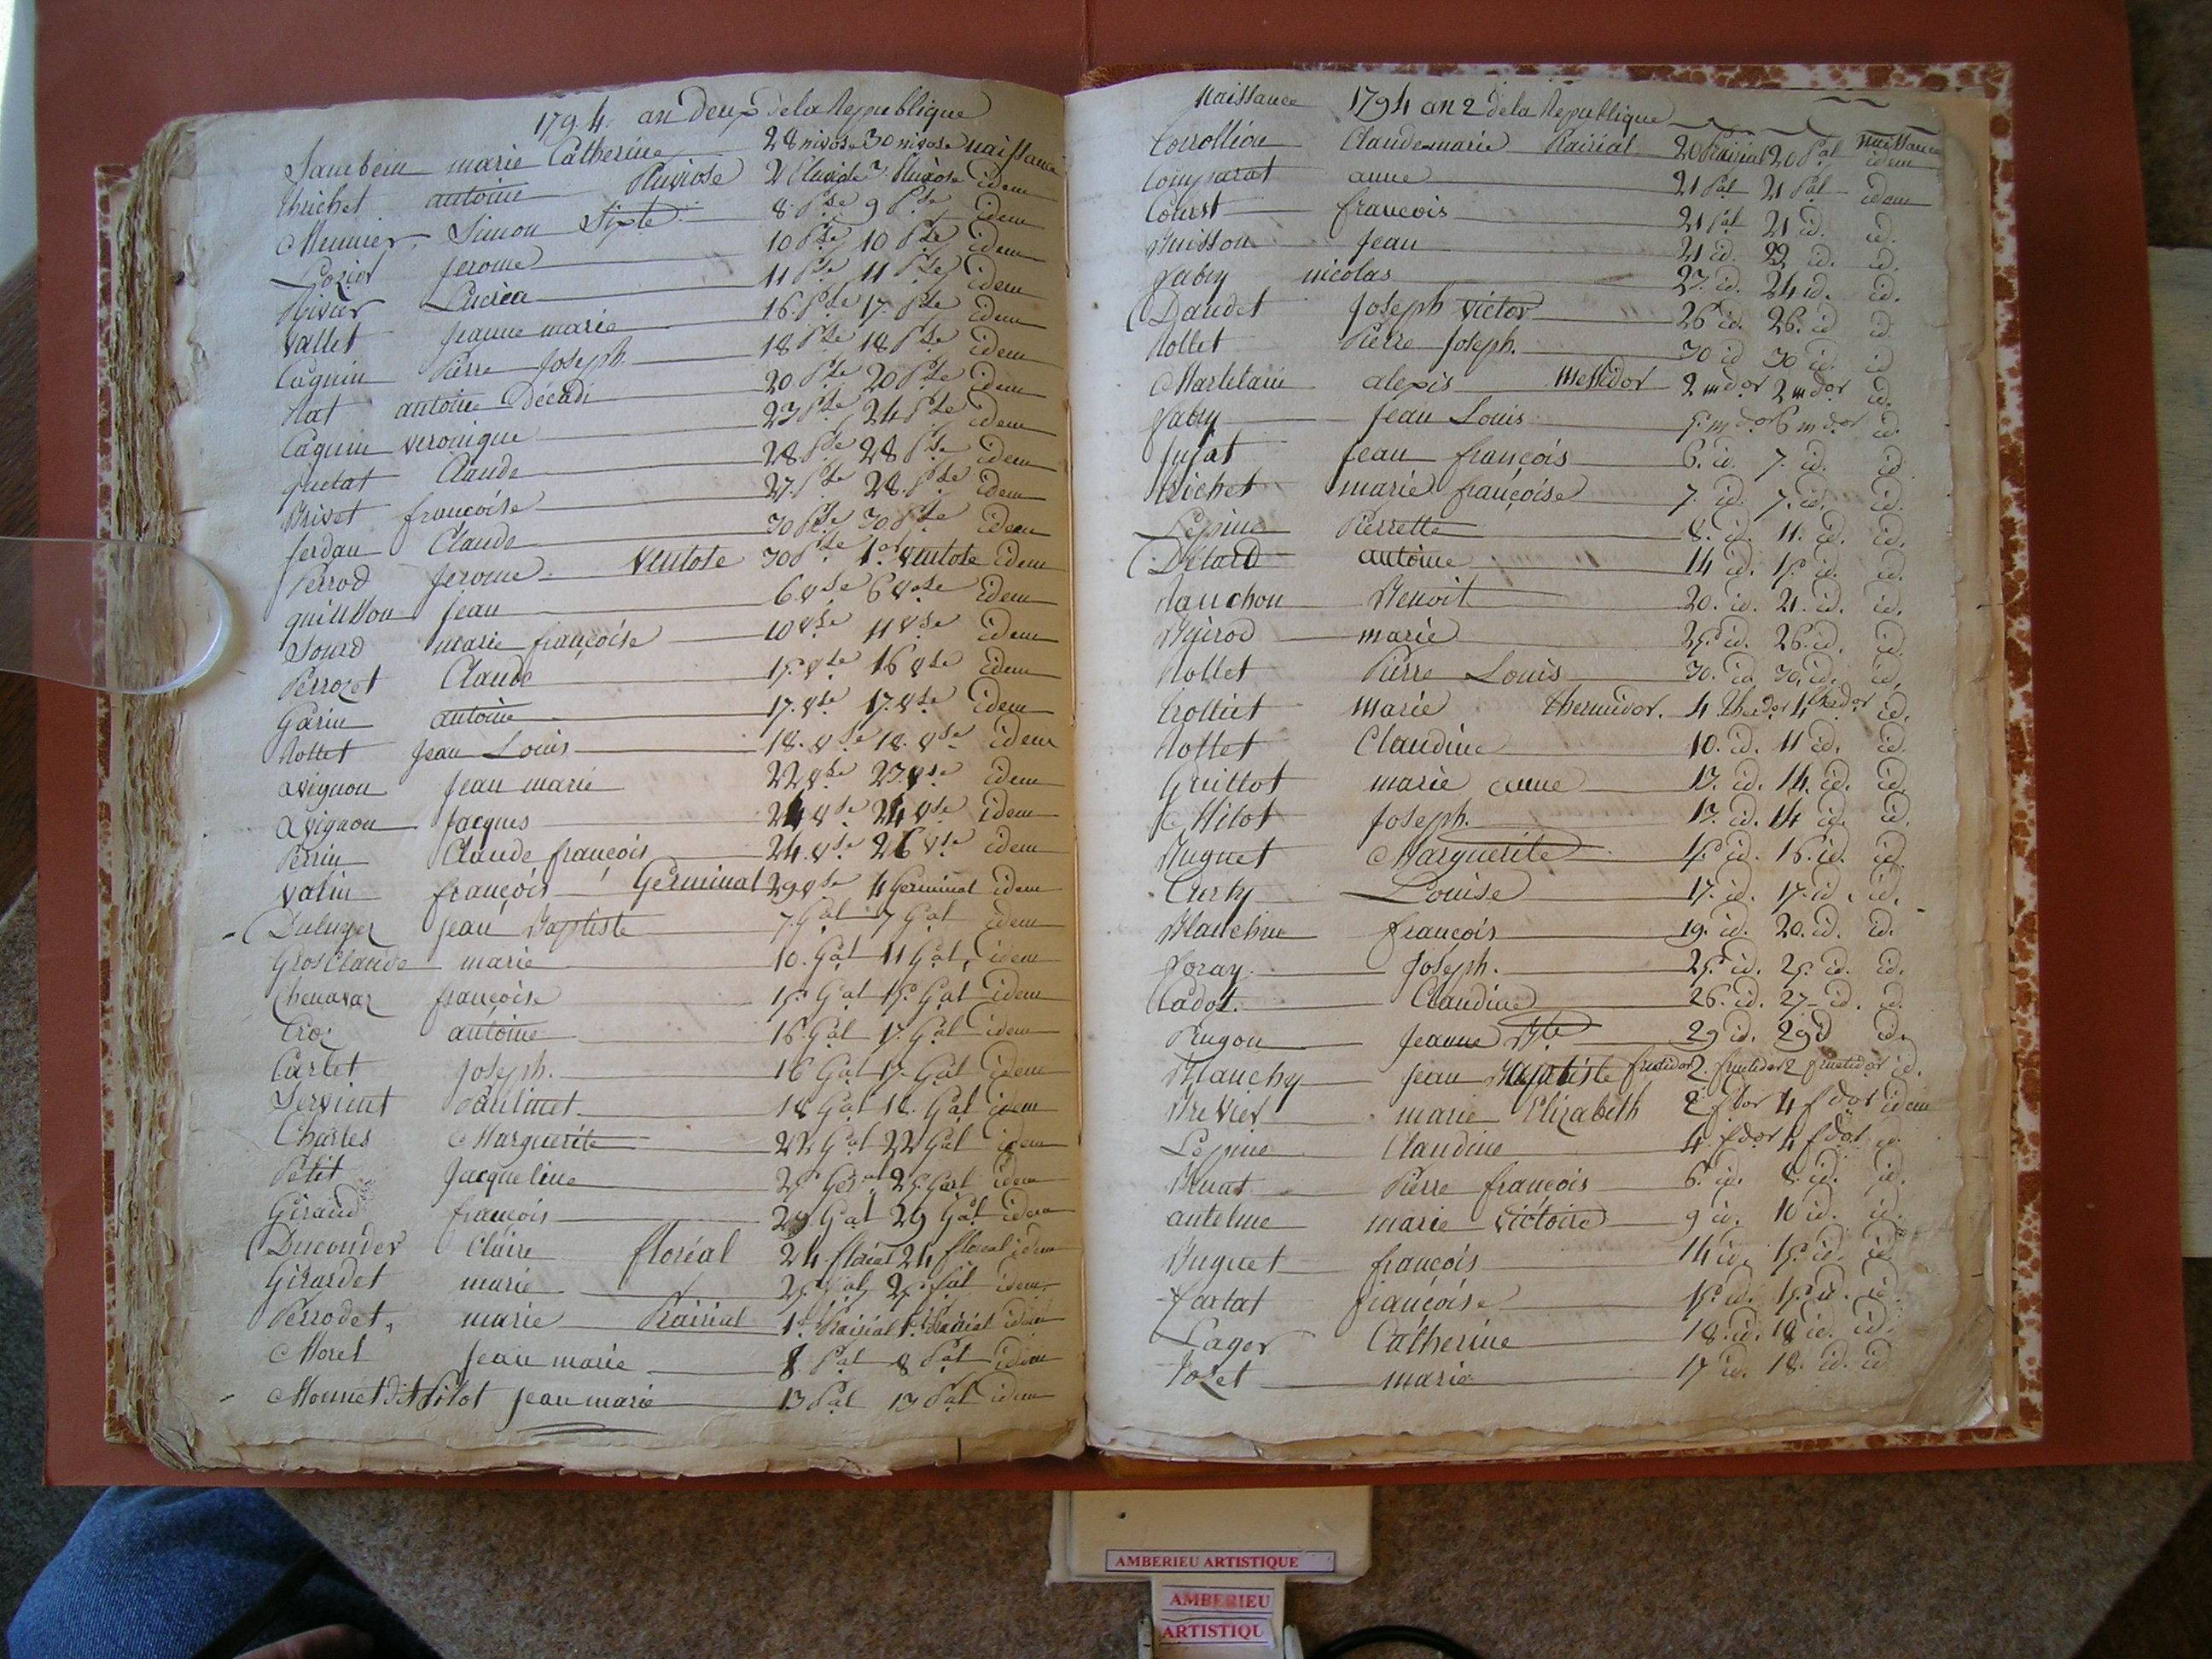 1794. an deux de la Republique
Jambein marie Catherine 28 nivose 30 nivose naissance
thrichet antoine Pluviose 2 Pluviose Pluviose idem
Meunier Simon Sixte 8 Pse 9 Pse idem
Lozier Jerome 10 Pse 10 Pse idem
Rivier Lucrèce 11 Pse 11 Pse idem
Vallet Jeanne marie 16 Pse 17 Pse idem
Cagnin Pierre Joseph 18 Pse 18 Pse idem
Nat antoine Décadi 20 Pse 20 Pse idem
Cagnin veronique 23 Pse 24 Pse idem
guetat Claude 28 Pse 28 Pse idem
Brivet francoise 27 Pse 28 Pse idem
ferdan Claude 30 Pse 30 Pse idem
Perrod Jerome Ventose 30 Pse 1er Ventose idem
guillon Jean 6 Vse 6 Vse idem
Sourd marie françoise 10 Vse 11 Vse idem
Perrozet Claude 15. Vse 16 Vse idem
Garin antoine 17. Vse 17. Vse idem
Nollet Jean Louis 18. Vse 18. Vse idem
avignon Jean marie 22 Vse 23 Vse idem
avignon Jacques 24 Vse 24 Vse idem
Perrin Claude françois 24. Vse 26 Vse idem
valin françois Germinal 29 Vse 4 Germinal idem
Jean Baptiste 7. Gal 7 Gal idem
Gros Claude marie 10. Gal 11 Gal, idem
Chenavaz françoise 15 Gal 15. Gal idem
Croz antoine 16. Gal 17. Gal idem
Carlet Joseph. 16 Gal 17 Gal idem
Servient 18 Gal 18. Gal idem
Charles Marguerite 22 Gal 22 Gal idem
Petit Jacqueline 25 Geral 25. Geral idem
Giraud françois 29. Gal 29 Gal idem
Ducoudés Claire floréal 24 floréal 24 floréal idem
Girardet marie 25 fal 25 fal idem
Perrodet, marie Prairial 1er Prairial 1. Prairial idem
Morel Jean marie 8 Pal 8 Pal idem
Monnet dit Pilot Jean marie 13 Pal 13 Pal idem
Naissance 1794 an 2 de la Republique
Corrollion Claude marie Prairial 20 Prairial 20 Pal naissance
Comparat anne 21 Pal 21 Pal idem
Courst françois 21 Pal 21 id. id.
Buisson Jean 21 id. 22 id. id.
Jabry nicolas 23. id. 24 id. id.
Daudet Joseph victor 26 id. 26. id id
Nollet Pierre Joseph. 30 id 30 id. id
Martelain alexis Messidor 2 mdor 2 mdor id.
Jabry Jean Louis 5. mdor 6 mdor id.
Jujat Jean françois 6. id. 7. id. id
trichet marie françoise 7. id. 7. id. id.
Lépine Pierrette 8. id. 11. id. id.
Délard antoine 14 id. 15. id. id.
Nauchon Benoit 20. id. 21. id. id.
marie 25 id. 26. id. id.
Nollet Pierre Louis 30. id 30. id. id.
trolliet marie thermidor. 4 therdor 4 therdor id.
Nollet Claudine 10. id. 11 id. id.
Guillot marie anne 13. id. 14. id. id.
Milot Joseph. 13. id. 14 id. id.
Buguet Marguerite 15 id. 16. id. id.
Curty Louise 17. id. 17. id. id.
Blanchin françois 19. id. 20. id. id.
Foray Joseph. 25. id. 25. id. id.
Cadot. Claudine 26. id. 27 id. id.
Prugon Jeanne Bte 29 id. 29 d id.
Blanchy Jean Baptiste fructidor 2. fructidor 2 fructidor id.
Brevier marie Elizabeth 2 fdor 4 fdor idem
Lépine Claudine 4. fdor 4 fdor id
Brunat Pierre françois 6. id. 8. id. id.
antelme marie victoire 9 id. 10 id. id.
Buguet françois 14 id. 15. id. id.
fartat françoise 15. id. 15. id. id.
Lager Catherine 18. id. 18 id. id.
Vozet marie 17 id. 18. id. id
AMBERIEU ARTISTIQUE
AMBERIEU
ARTISTIQU